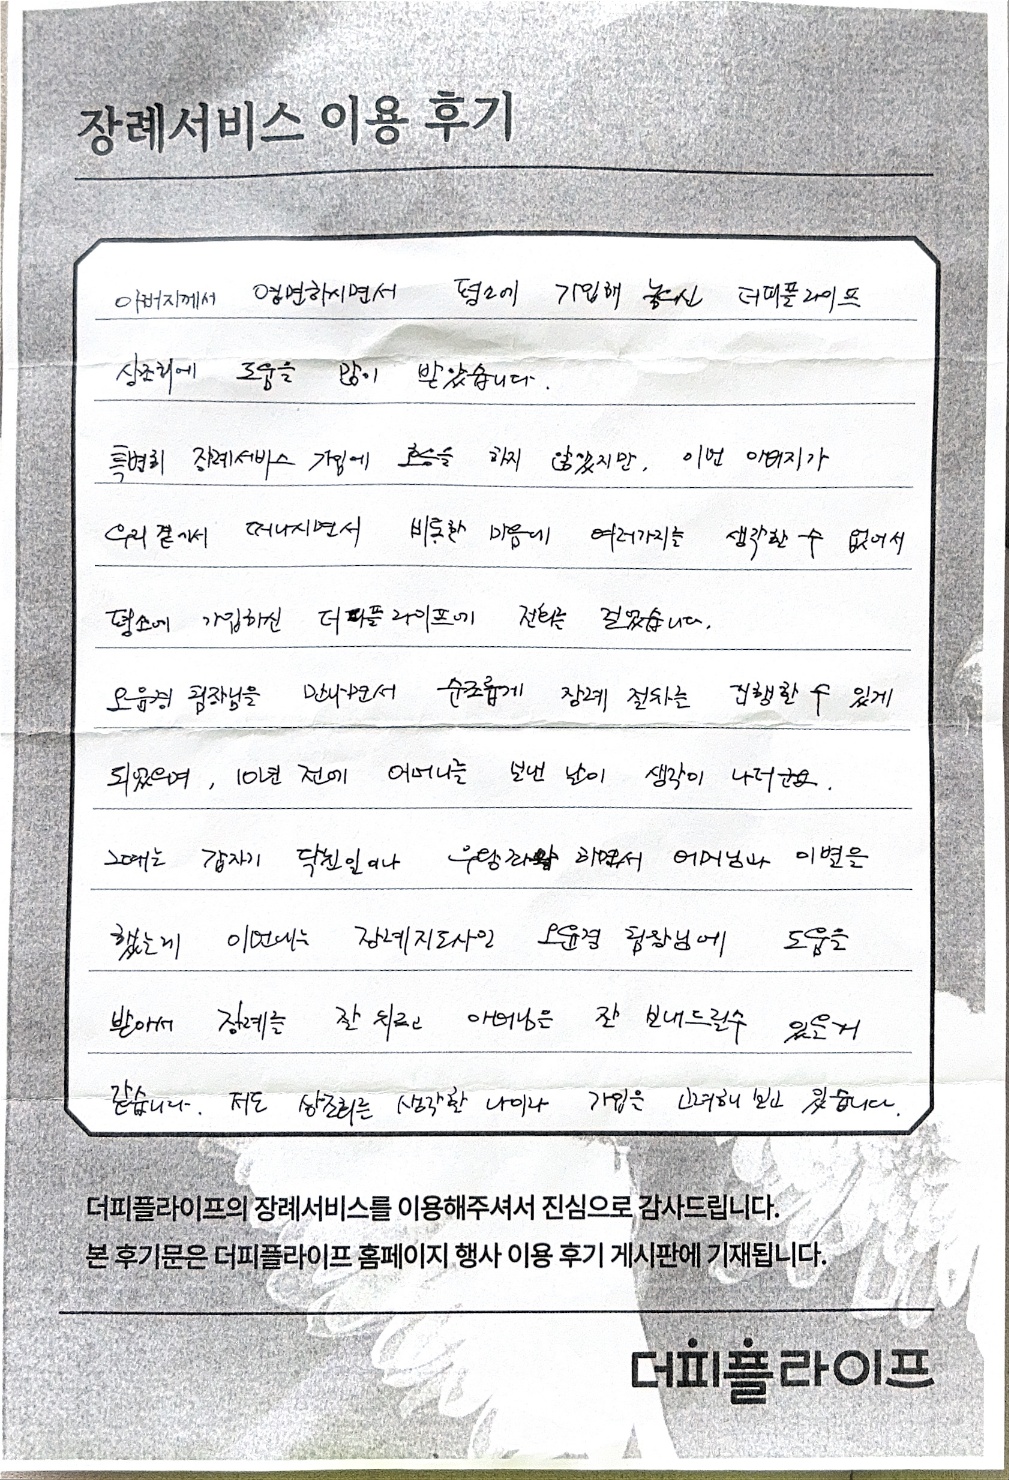 장례서비스 이용 후기
아버지께서 영면하시면서 평소에 가입해 놓으신 더피플라이프
상조회에 도움을 많이 받았습니다.
특별히 장례서비스 가입에 호응을 하지 않았지만, 이번 아버지가
우리 곁에서 떠나시면서 비통한 마음에 여러가지를 생각할 수 없어서
평소에 가입하신 더피플라이프에 전화를 걸었습니다.
오윤결 팀장님을 만나면서 순조롭게 장례 절차를 진행할 수 있게
되었으며, 10년 전에 어머니를 보낸 날이 생각이 나더군요.
그때는 갑자기 닥친일이나 우왕좌왕 하면서 어머님과 이별을
했는데 이번에는 장례지도사인 오윤결 팀장님에 도움을
받아서 장례를 잘 치르고 아버님은 잘 보내드릴수 있은거
같습니다. 저도 상조회를 생각할 나이라 가입을 고려해 보고 있습니다.
더피플라이프의 장례서비스를 이용해주셔서 진심으로 감사드립니다.
본 후기문은 더피플라이프 홈페이지 행사 이용 후기 게시판에 기재됩니다.
더피플라이프